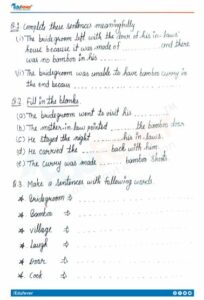 Eduhover
Q.1 Complete these sentences meaningfully.
(i) The bridegroom left with the door of his in-laws'
house because it was made of .......... and there
was no bamboo in his ......
(ii) The bridegroom was unable to have bamboo curry in
the end because ....................
Q.2 Fill in the blanks.
(a) The bridegroom went to visit his ..........
(b) The mother-in law pointed ........ the bamboo door.
(c) He stayed the night ........ his in-laws.
(d) He carried the ........ back with him.
(e) The curry was made ........ bamboo shoots.
Q.3 Make a sentences with following words.
* Bridegroom :-
* Bamboo :-
* Village :-
* Laugh :-
* Door :-
* Cook :-